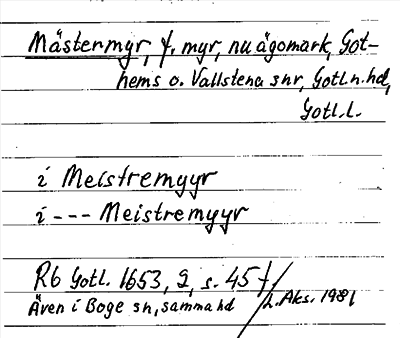 Mästermyr, f. myr, nu ägomark, Got-
hems o. Vallstena snr, Gotl.n.hd,
Gotl.l.
i Meistremyyr
i --- Meistremyyr
Rb Gotl. 1653, 2, s. 45 f.
Även i Boge sn, samma hd
L. Aks. 1981